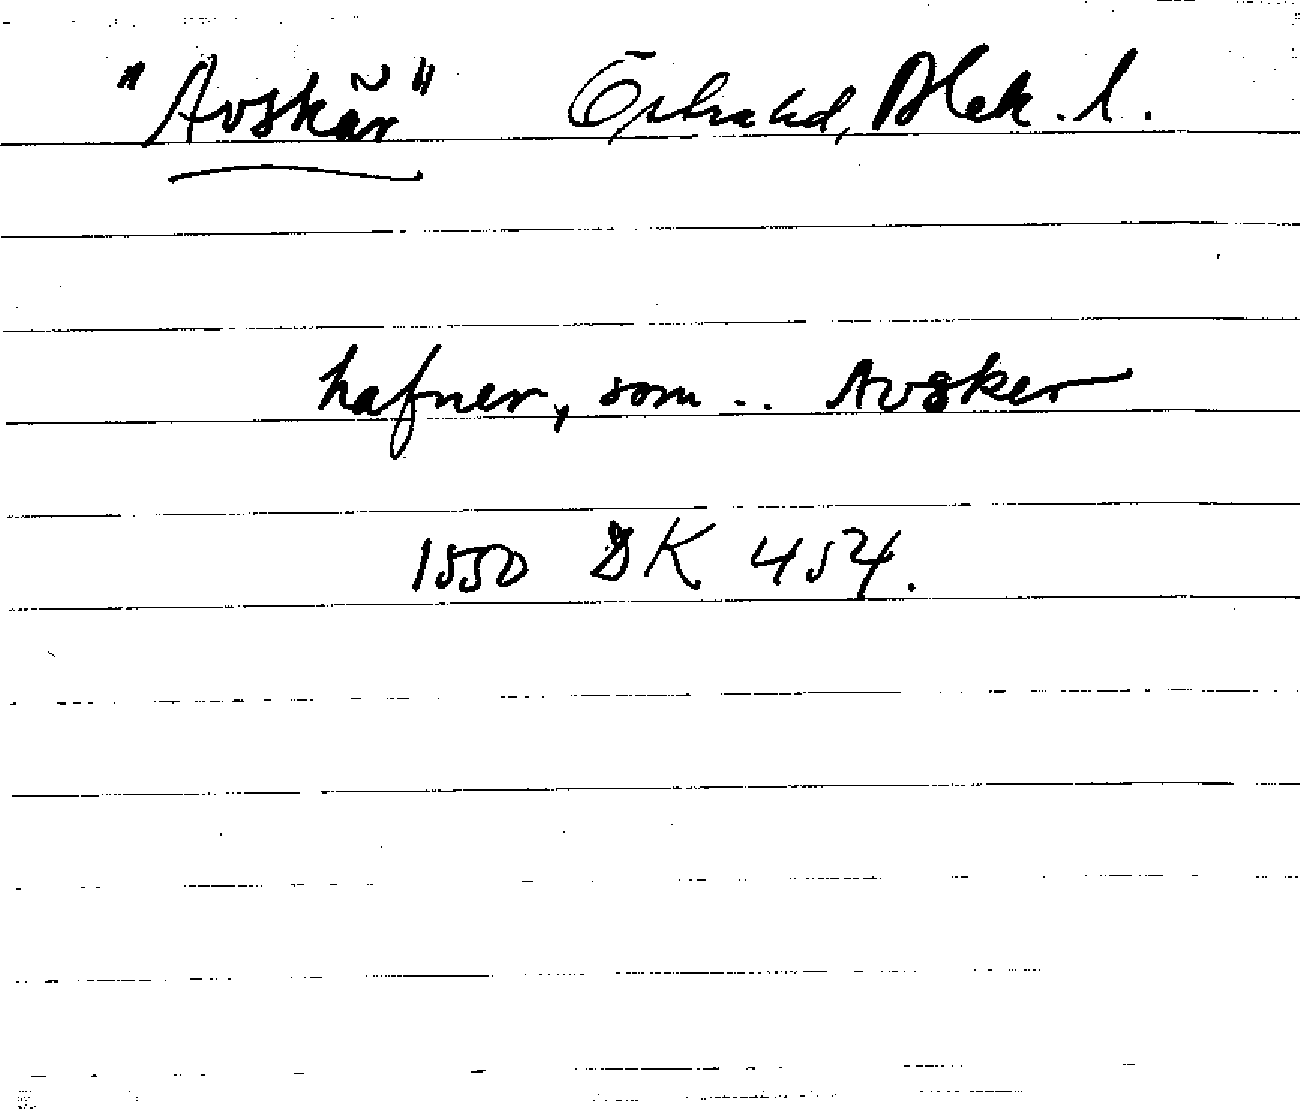 "Avskär" Östra hd, Blek. l.
hafner, som .. Avsker
1550 DK 454.